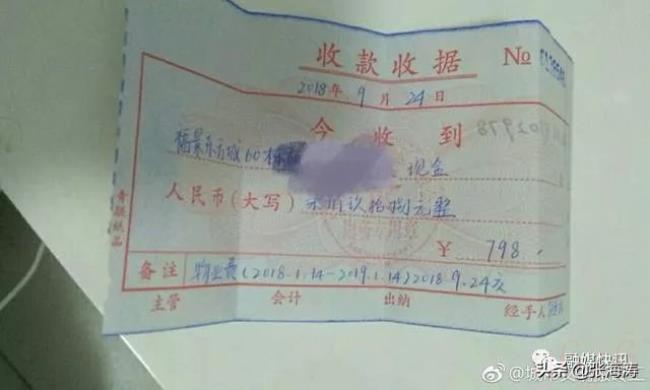 收款收据 №
2018年9月24日
今收到
东方城60栋 现金
人民币(大写)柒佰玖拾捌元整
¥ 798.
备注 物业费(2018.1.14-2019.1.14)2018.9.24交
主管 会计 出纳 经手人
融媒快讯
头条@张海涛